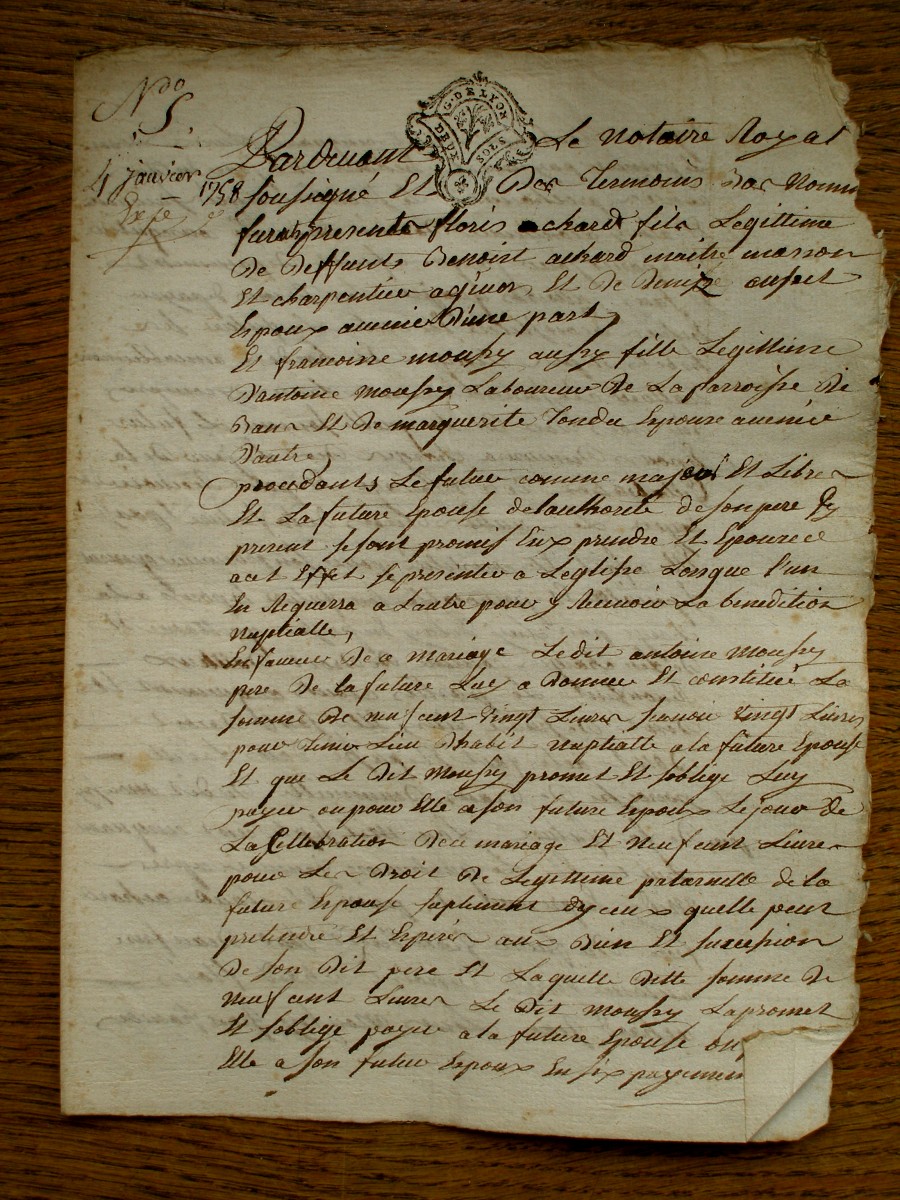 No
5
4 janvier 1758
Expé
G. DE LYON
DEUX SOLS
Pardevant Le Notaire Royal
soussigné Et Des Temoins Bas Nommé
furent presents floris achard fils Legittime
De deffunts Benoist achard maitre masson
Et charpentier a givors, Et De Denize
Epoux avenir D'une part,
Et francoise moussy aussy fille Legittime
D'antoine moussy Laboureur De La parroisse De
Et De marguerite Tondu Epouse avenir
D'autre,
procedants Le futur comme majeur Et Libre
Et La future Epouse de l'authorité de son pere Icy
present se sont promis Eux prendre Et Epouser
a cet Effet se presenter a Leglisse Lorsque l'un
En Requerra a Lautre pour y Recevoir La benedition
Nuptialle,
En faveur De ce mariage Le dit antoine moussy
pere De la future Luy a Donné Et constitué La
somme De neufcent vingt Livres scavoir vingt Livres
pour Tenir Lieu Dhabit nuptialle a la future Epouse
Et que Le Dit Moussy promet Et soblige Luy
payer ou pour Elle a son futur Epoux Le jour de
La Cellebration De ce mariage Et Neufcent Livres
pour Les Droit De Legittime paternelle de la
future Epouse suplement dyceux quelle peut
pretendre Et Esperer aux Bien Et succession
De son Dit pere Et Laquelle Ditte somme De
Neufcent Livres Le Dit moussy La promet
Et soblige payer a la future Epouse ou
Elle a son futur Epoux En six payemen